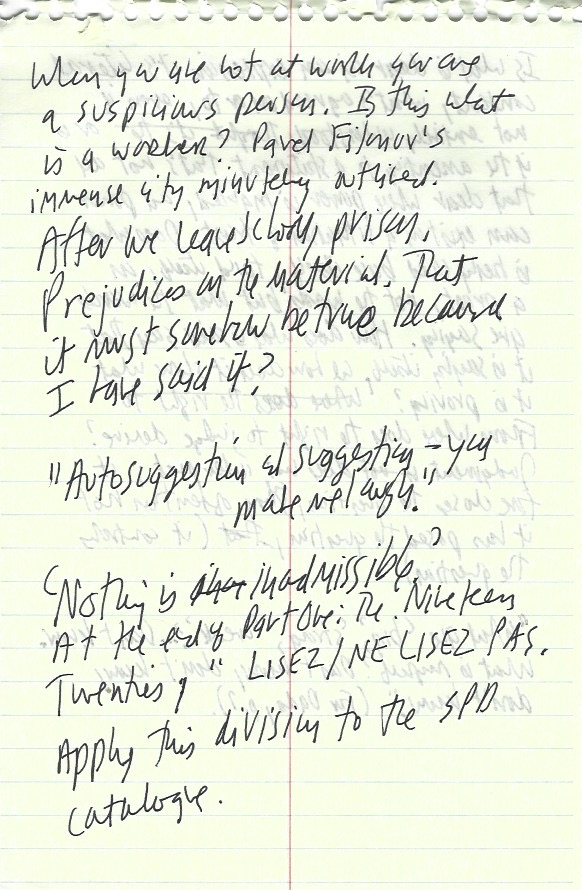 When you are not at work you are
a suspicious person. Is this what
is a worker? Pavel Filonov's
immense city minutely outlined.
After we leave school, prison.
Prejudices on the material. That
it must somehow be true because
I have said it?
"Autosuggestion and suggestion – you
make me laugh."
"Nothing is inadmissible."
At the end of Part One: The Nineteen
Twenties, " LISEZ/NE LISEZ PAS.
Apply this division to the SPD
catalogue.